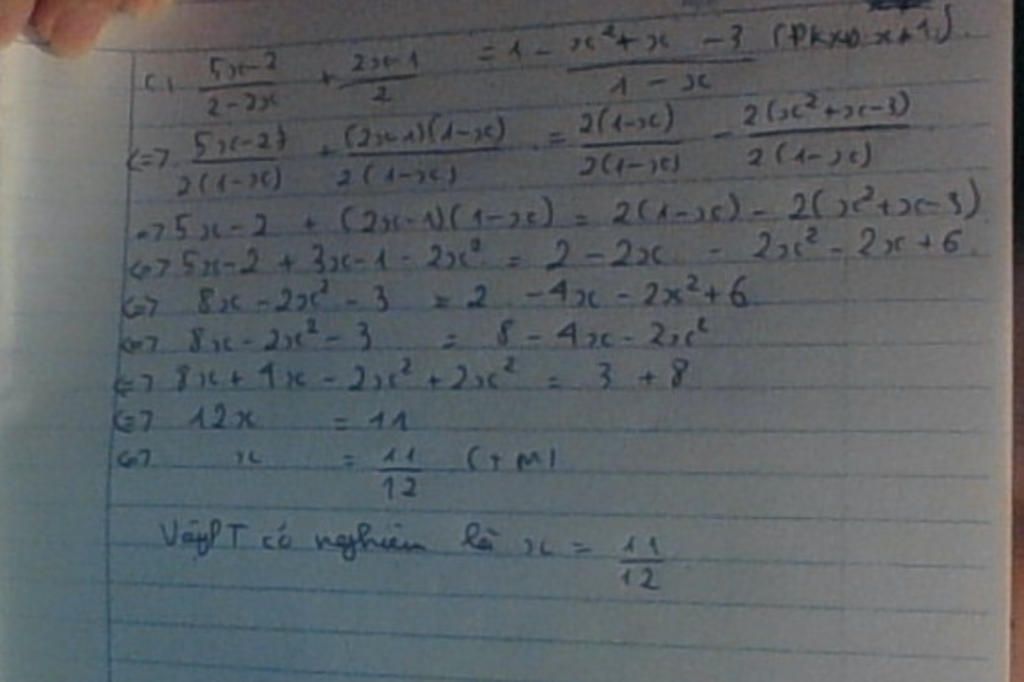 c) \frac{5x-2}{2-2x} + \frac{2x-1}{2} = 1 - \frac{x^2+x-3}{1-x} (ĐKXĐ x≠1)
<=> \frac{5x-2}{2(1-x)} + \frac{(2x-1)(1-x)}{2(1-x)} = \frac{2(1-x)}{2(1-x)} - \frac{2(x^2+x-3)}{2(1-x)}
=> 5x-2 + (2x-1)(1-x) = 2(1-x) - 2(x^2+x-3)
<=> 5x-2 + 3x-1-2x^2 = 2-2x - 2x^2-2x+6
<=> 8x-2x^2-3 = 2 -4x-2x^2+6
<=> 8x-2x^2-3 = 8-4x-2x^2
<=> 8x+4x-2x^2+2x^2 = 3+8
<=> 12x = 11
<=> x = \frac{11}{12} (TM)
Vậy PT có nghiệm là x = \frac{11}{12}